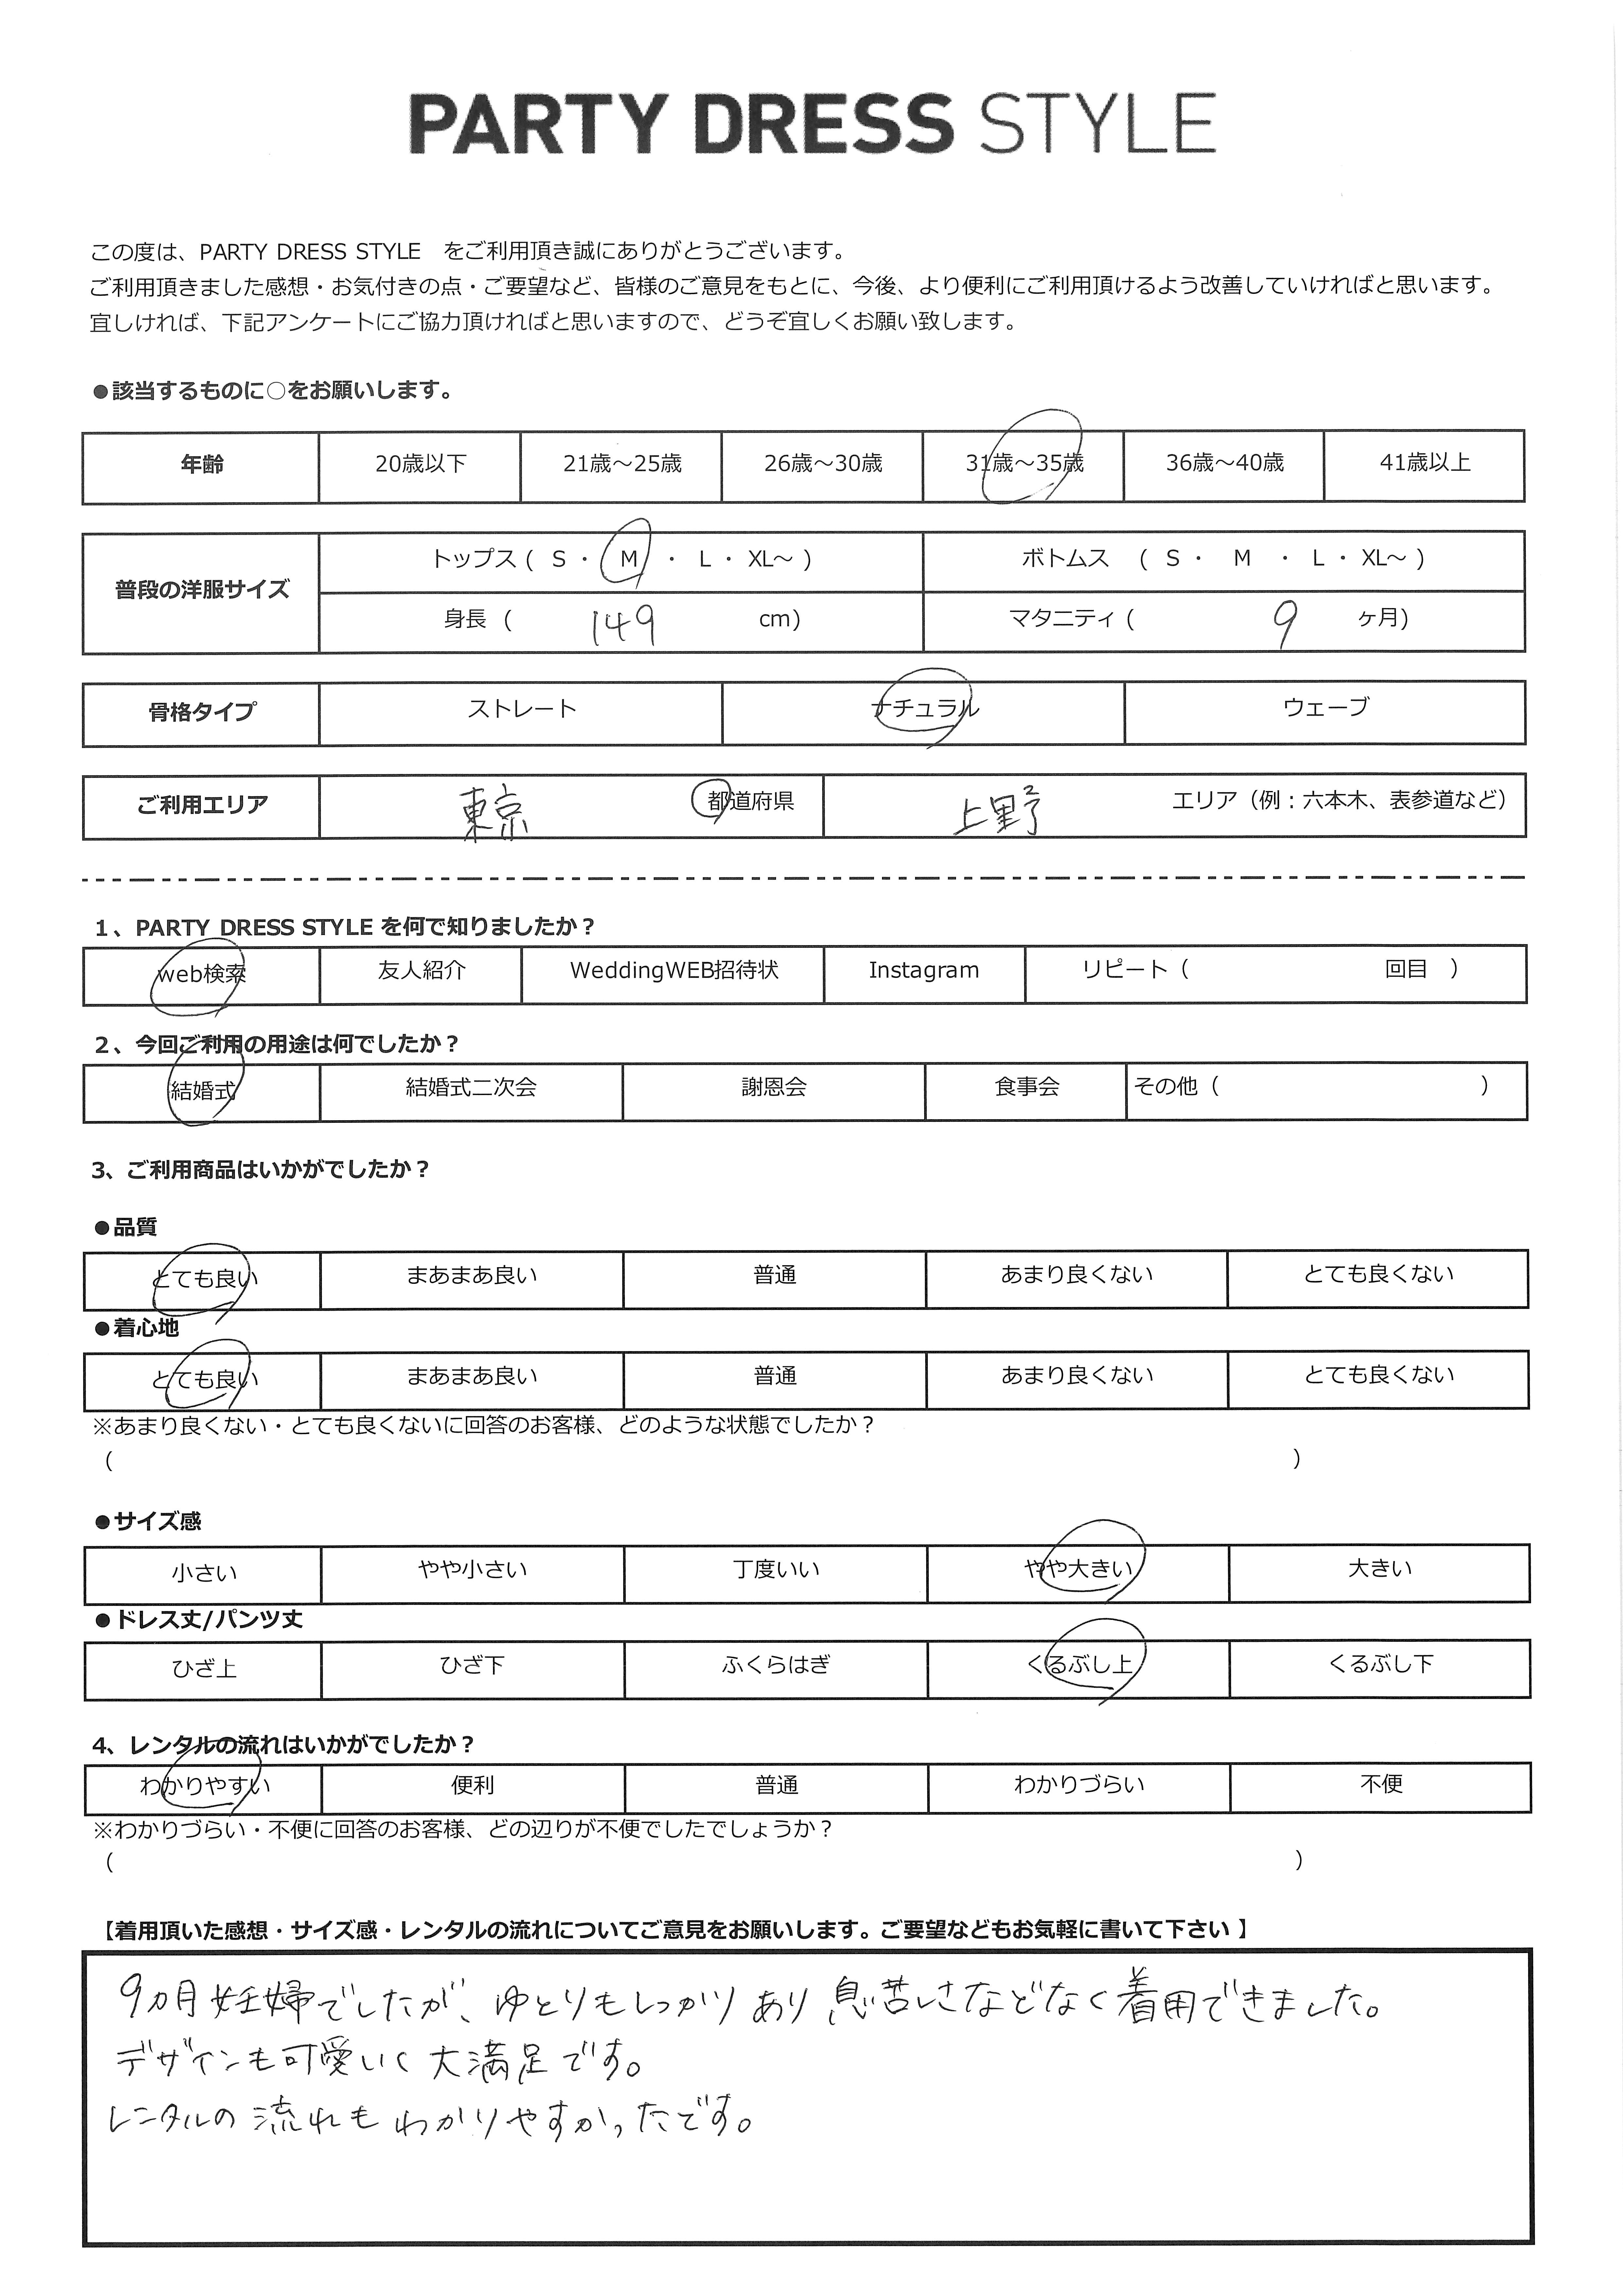 PARTY DRESS STYLE
この度は、PARTY DRESS STYLE をご利用頂き誠にありがとうございます。
ご利用頂きました感想・お気付きの点・ご要望など、皆様のご意見をもとに、今後、より便利にご利用頂けるよう改善していければと思います。
宜しければ、下記アンケートにご協力頂ければと思いますので、どうぞ宜しくお願い致します。
●該当するものに○をお願いします。
年齢 20歳以下 21歳～25歳 26歳～30歳 31歳～35歳 36歳～40歳 41歳以上
普段の洋服サイズ
トップス ( S ・ M ・ L ・ XL～ ) ボトムス ( S ・ M ・ L ・ XL～ )
身長 ( 149 cm) マタニティ ( 9 ヶ月)
骨格タイプ ストレート ナチュラル ウェーブ
ご利用エリア 東京 都道府県 上野 エリア（例：六本木、表参道など）
1、PARTY DRESS STYLE を何で知りましたか？
web検索 友人紹介 WeddingWEB招待状 Instagram リピート（ 回目 ）
2、今回ご利用の用途は何でしたか？
結婚式 結婚式二次会 謝恩会 食事会 その他（ ）
3、ご利用商品はいかがでしたか？
●品質
とても良い まあまあ良い 普通 あまり良くない とても良くない
●着心地
とても良い まあまあ良い 普通 あまり良くない とても良くない
※あまり良くない・とても良くないに回答のお客様、どのような状態でしたか？
( )
●サイズ感
小さい やや小さい 丁度いい やや大きい 大きい
●ドレス丈/パンツ丈
ひざ上 ひざ下 ふくらはぎ くるぶし上 くるぶし下
4、レンタルの流れはいかがでしたか？
わかりやすい 便利 普通 わかりづらい 不便
※わかりづらい・不便に回答のお客様、どの辺りが不便でしたでしょうか？
( )
【着用頂いた感想・サイズ感・レンタルの流れについてご意見をお願いします。ご要望などもお気軽に書いて下さい 】
9ヵ月妊婦でしたが、ゆとりもしっかりあり息苦しさなどなく着用できました。
デザインも可愛いく大満足です。
レンタルの流れもわかりやすかったです。